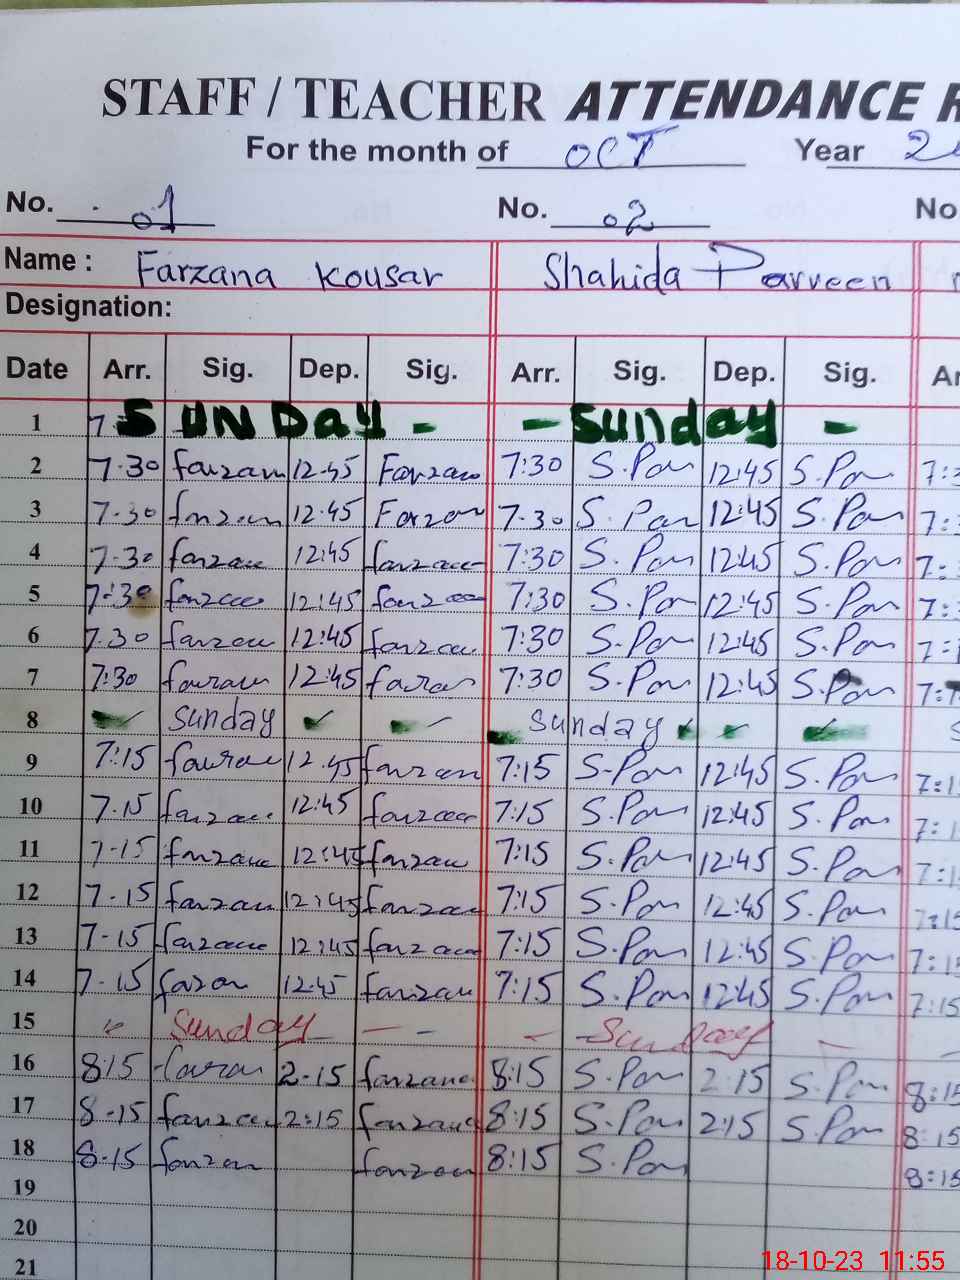 STAFF / TEACHER ATTENDANCE R
For the month of OCT Year 2
No. 01 No. 02 No
Name : Farzana Kousar Shahida Parveen
Designation:
Date Arr. Sig. Dep. Sig. Arr. Sig. Dep. Sig. Ar
1 7 SUNDAY - - Sunday -
2 7.30 farzan 12-45 Farzan 7:30 S.Par 12:45 S.Par 7:3
3 7-30 farzan 12-45 Farzan 7-30 S. Par 12:45 S.Par 7:
4 7-30 farzan 12:45 farzan 7:30 S.Par 12:45 S.Par 7:
5 7:30 farzan 12:45 farzan 7:30 S.Par 12:45 S.Par 7:
6 7.30 farzan 12:45 farzan 7:30 S.Par 12:45 S.Par 7:
7 7:30 12:45 7:30 S.Par 12:45 S.Par 7:
8 Sunday Sunday S
9 7:15 12.45 farzan 7:15 S-Par 12:45 S.Par 7:1
10 7.15 farzan 12:45 farzan 7:15 S.Par 12:45 S.Par 7:1
11 7-15 farzan 12:45 farzan 7:15 S.Par 12:45 S.Par 7:1
12 7-15 farzan 12:45 farzan 7:15 S.Par 12:45 S.Par 7:15
13 7-15 farzan 12:45 farzan 7:15 S.Par 12:45 S.Par 7:15
14 7-15 12:45 farzan 7:15 S.Par 12:45 S.Par 7:15
15 Sunday - - - Sunday - -
16 8:15 2-15 farzana 8:15 S.Par 2:15 S.Par 8:15
17 8-15 farzan 2:15 farzana 8:15 S.Par 2:15 S.Par 8:15
18 8-15 farzan farzan 8:15 S.Par 8:15
19
20
21
18-10-23 11:55